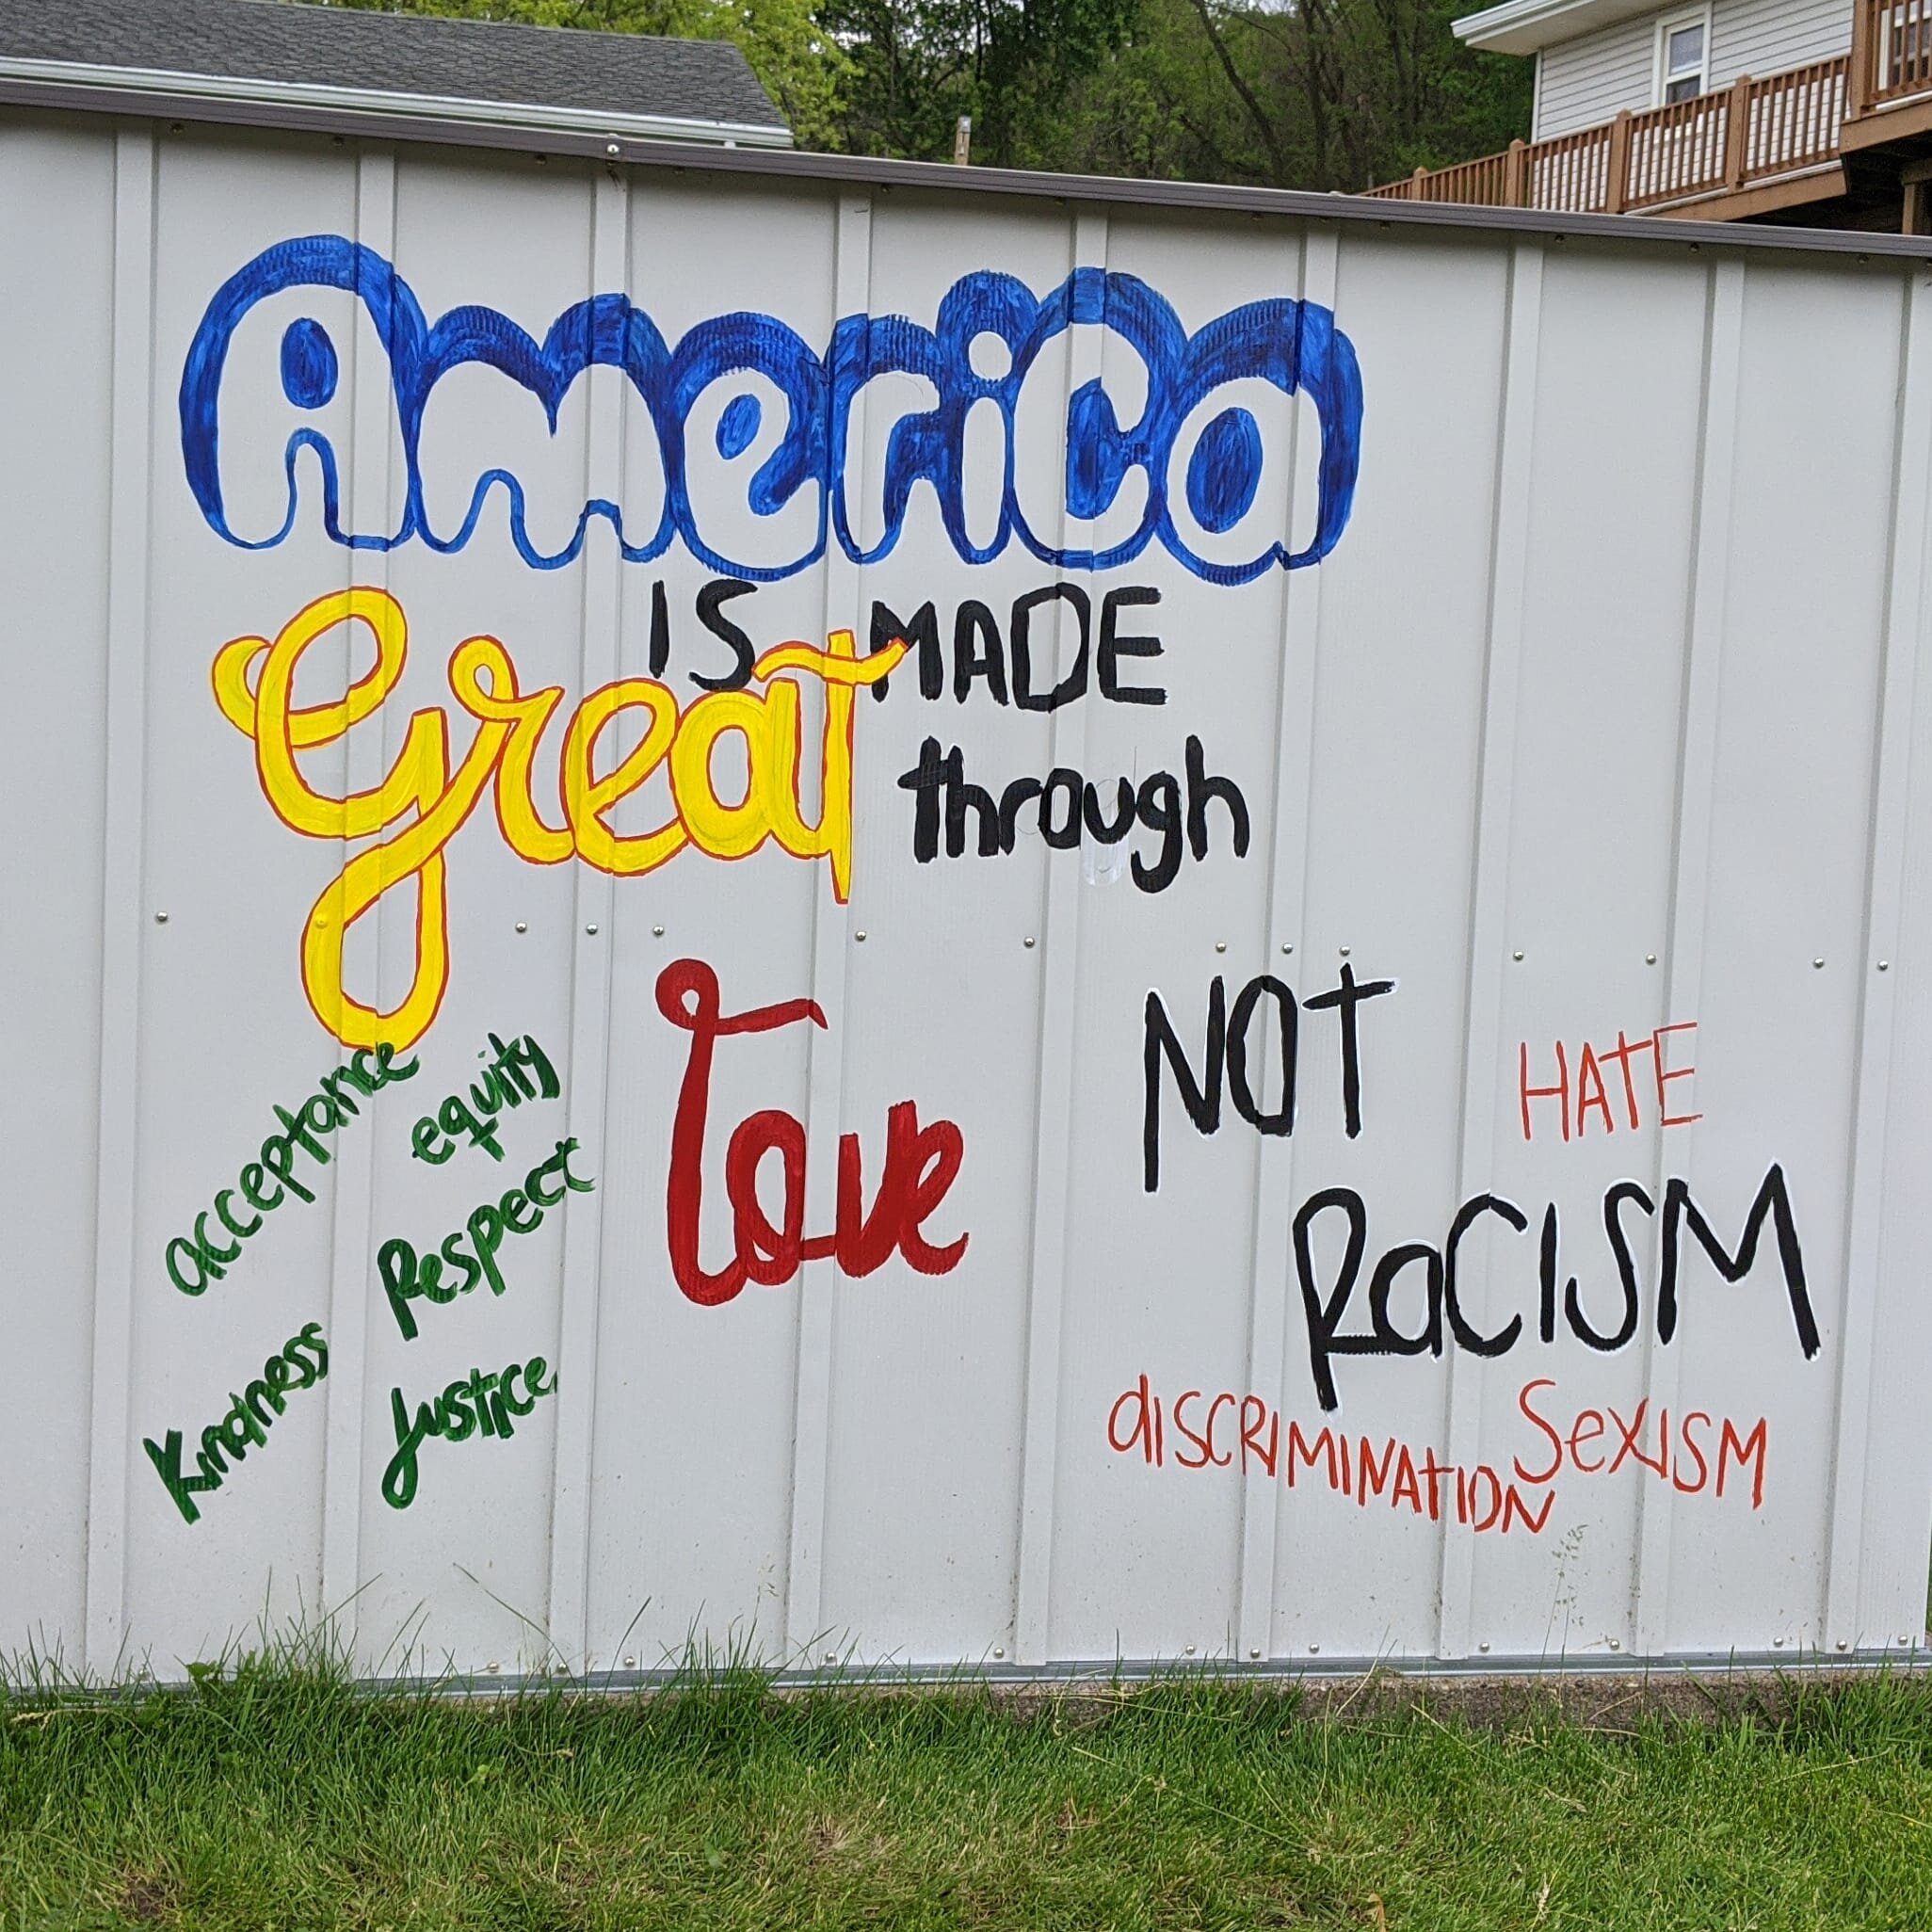 America
IS MADE
Great through
Love
acceptance
equity
Respect
Kindness
Justice
NOT
HATE
RaCISM
dISCRIMINATION
SexISM